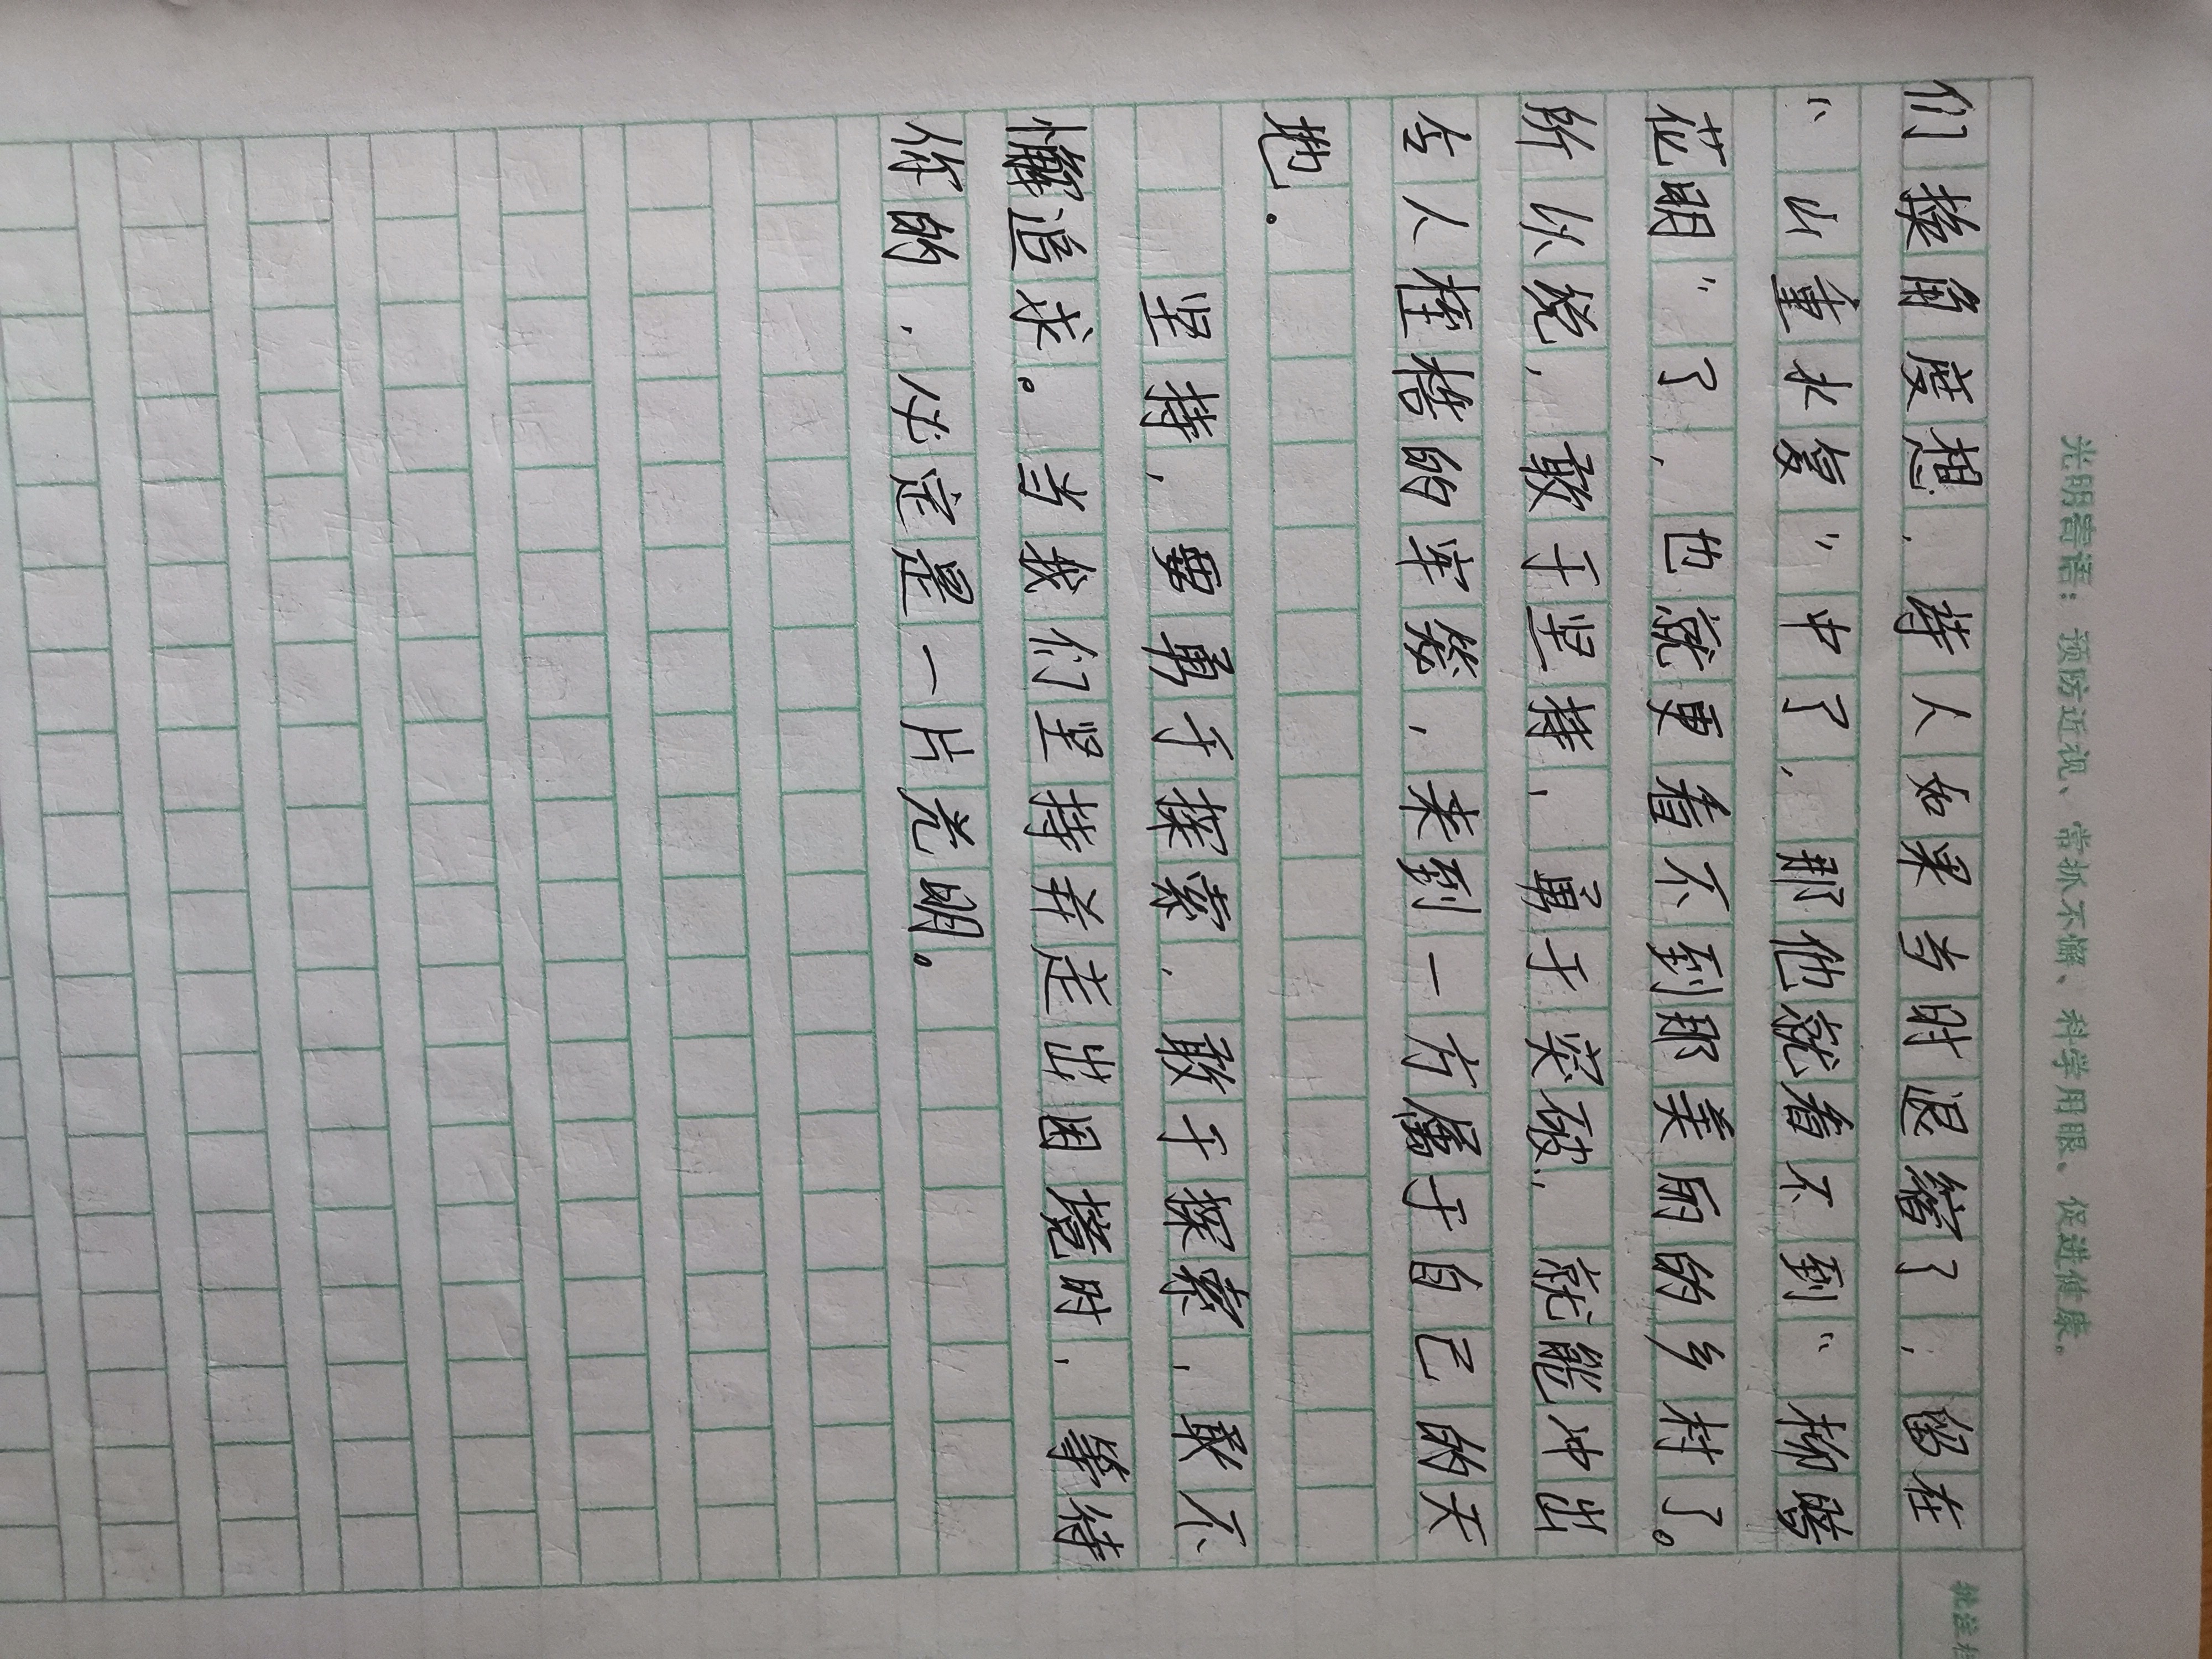 光明言语：预防近视、常抓不懈、科学用眼、促进健康。
批注栏
们换角度想，诗人如果当时退缩了，留在
“山重水复”中了，那他就看不到“柳暗
花明”了，也就更看不到那美丽的乡村了。
所以说，敢于坚持，勇于突破，就能冲出
令人桎梏的牢笼，来到一方属于自己的天
地。
坚持，要勇于探索，敢于探索，敢不
懈追求。当我们坚持并走出困境时，等待
你的，必定是一片光明。